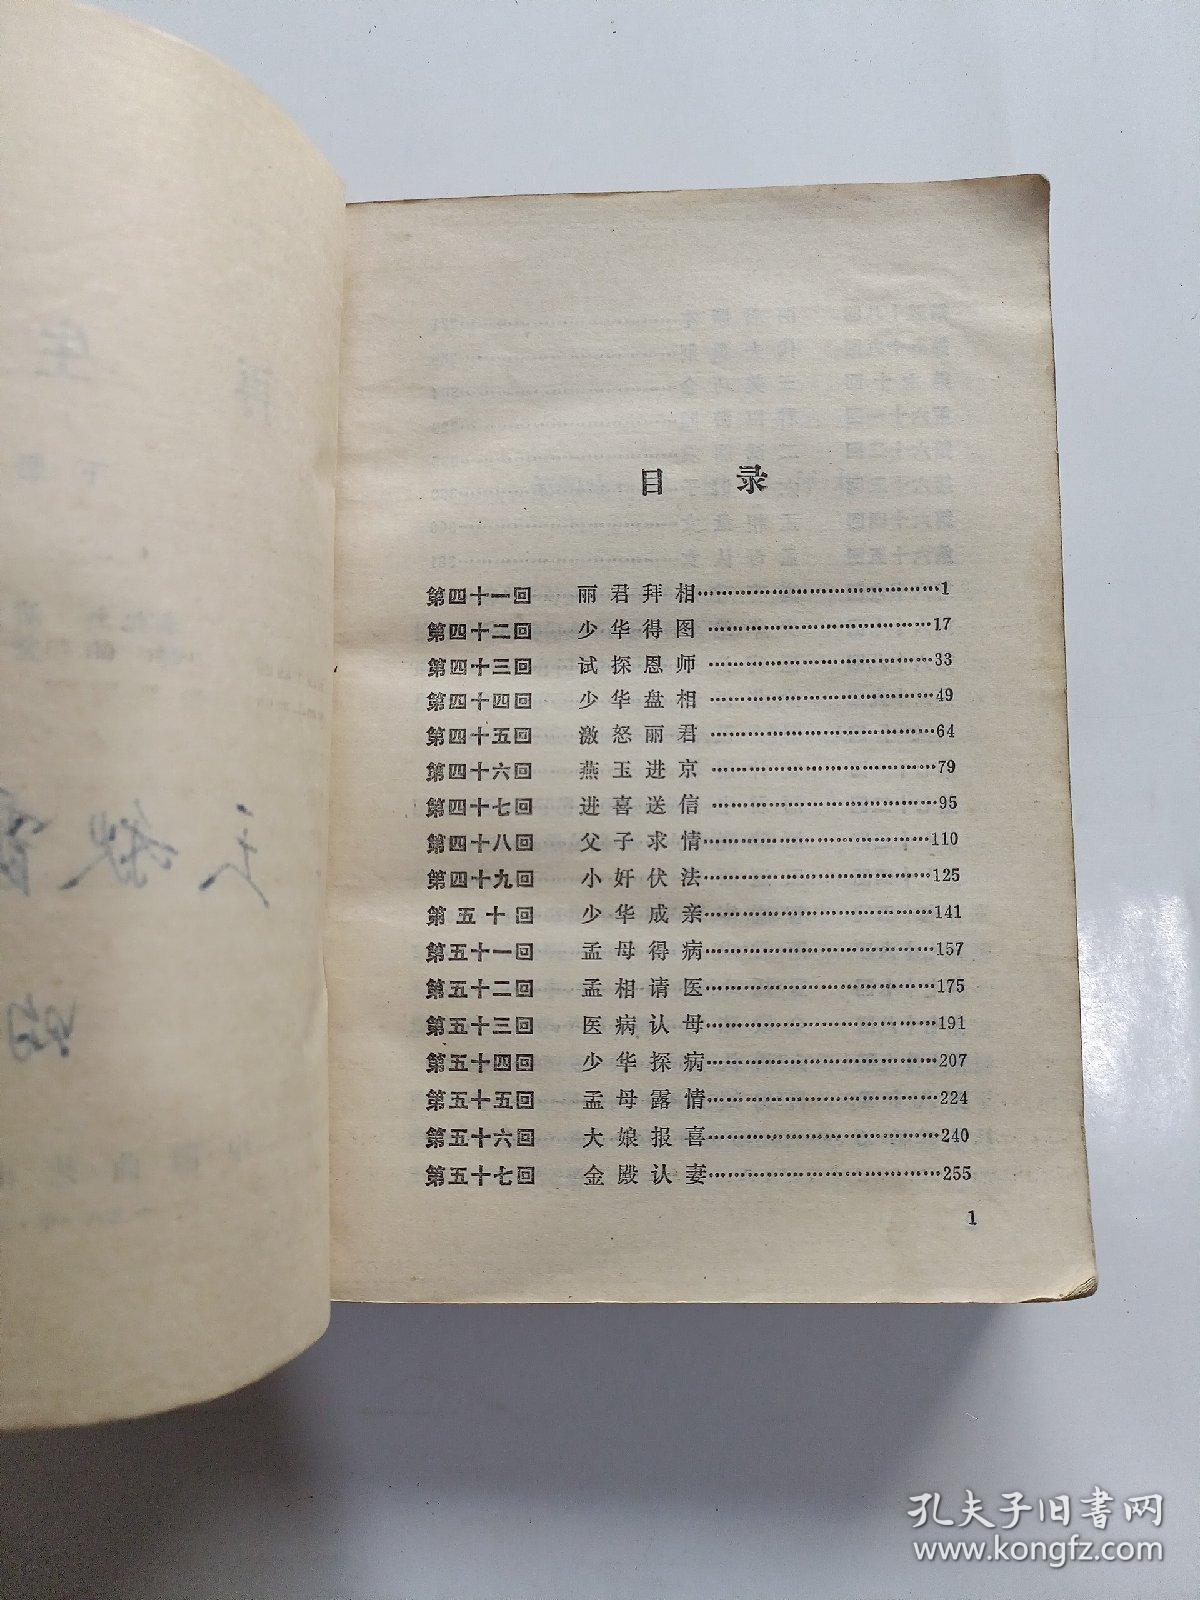 目录
第四十一回 丽君拜相……1
第四十二回 少华得图……17
第四十三回 试探恩师……33
第四十四回 少华盘相……49
第四十五回 激怒丽君……64
第四十六回 燕玉进京……79
第四十七回 进喜送信……95
第四十八回 父子求情……110
第四十九回 小奸伏法……125
第五十回 少华成亲……141
第五十一回 孟母得病……157
第五十二回 孟相请医……175
第五十三回 医病认母……191
第五十四回 少华探病……207
第五十五回 孟母露情……224
第五十六回 大娘报喜……240
第五十七回 金殿认妻……255
1
孔夫子旧书网
www.kongfz.com